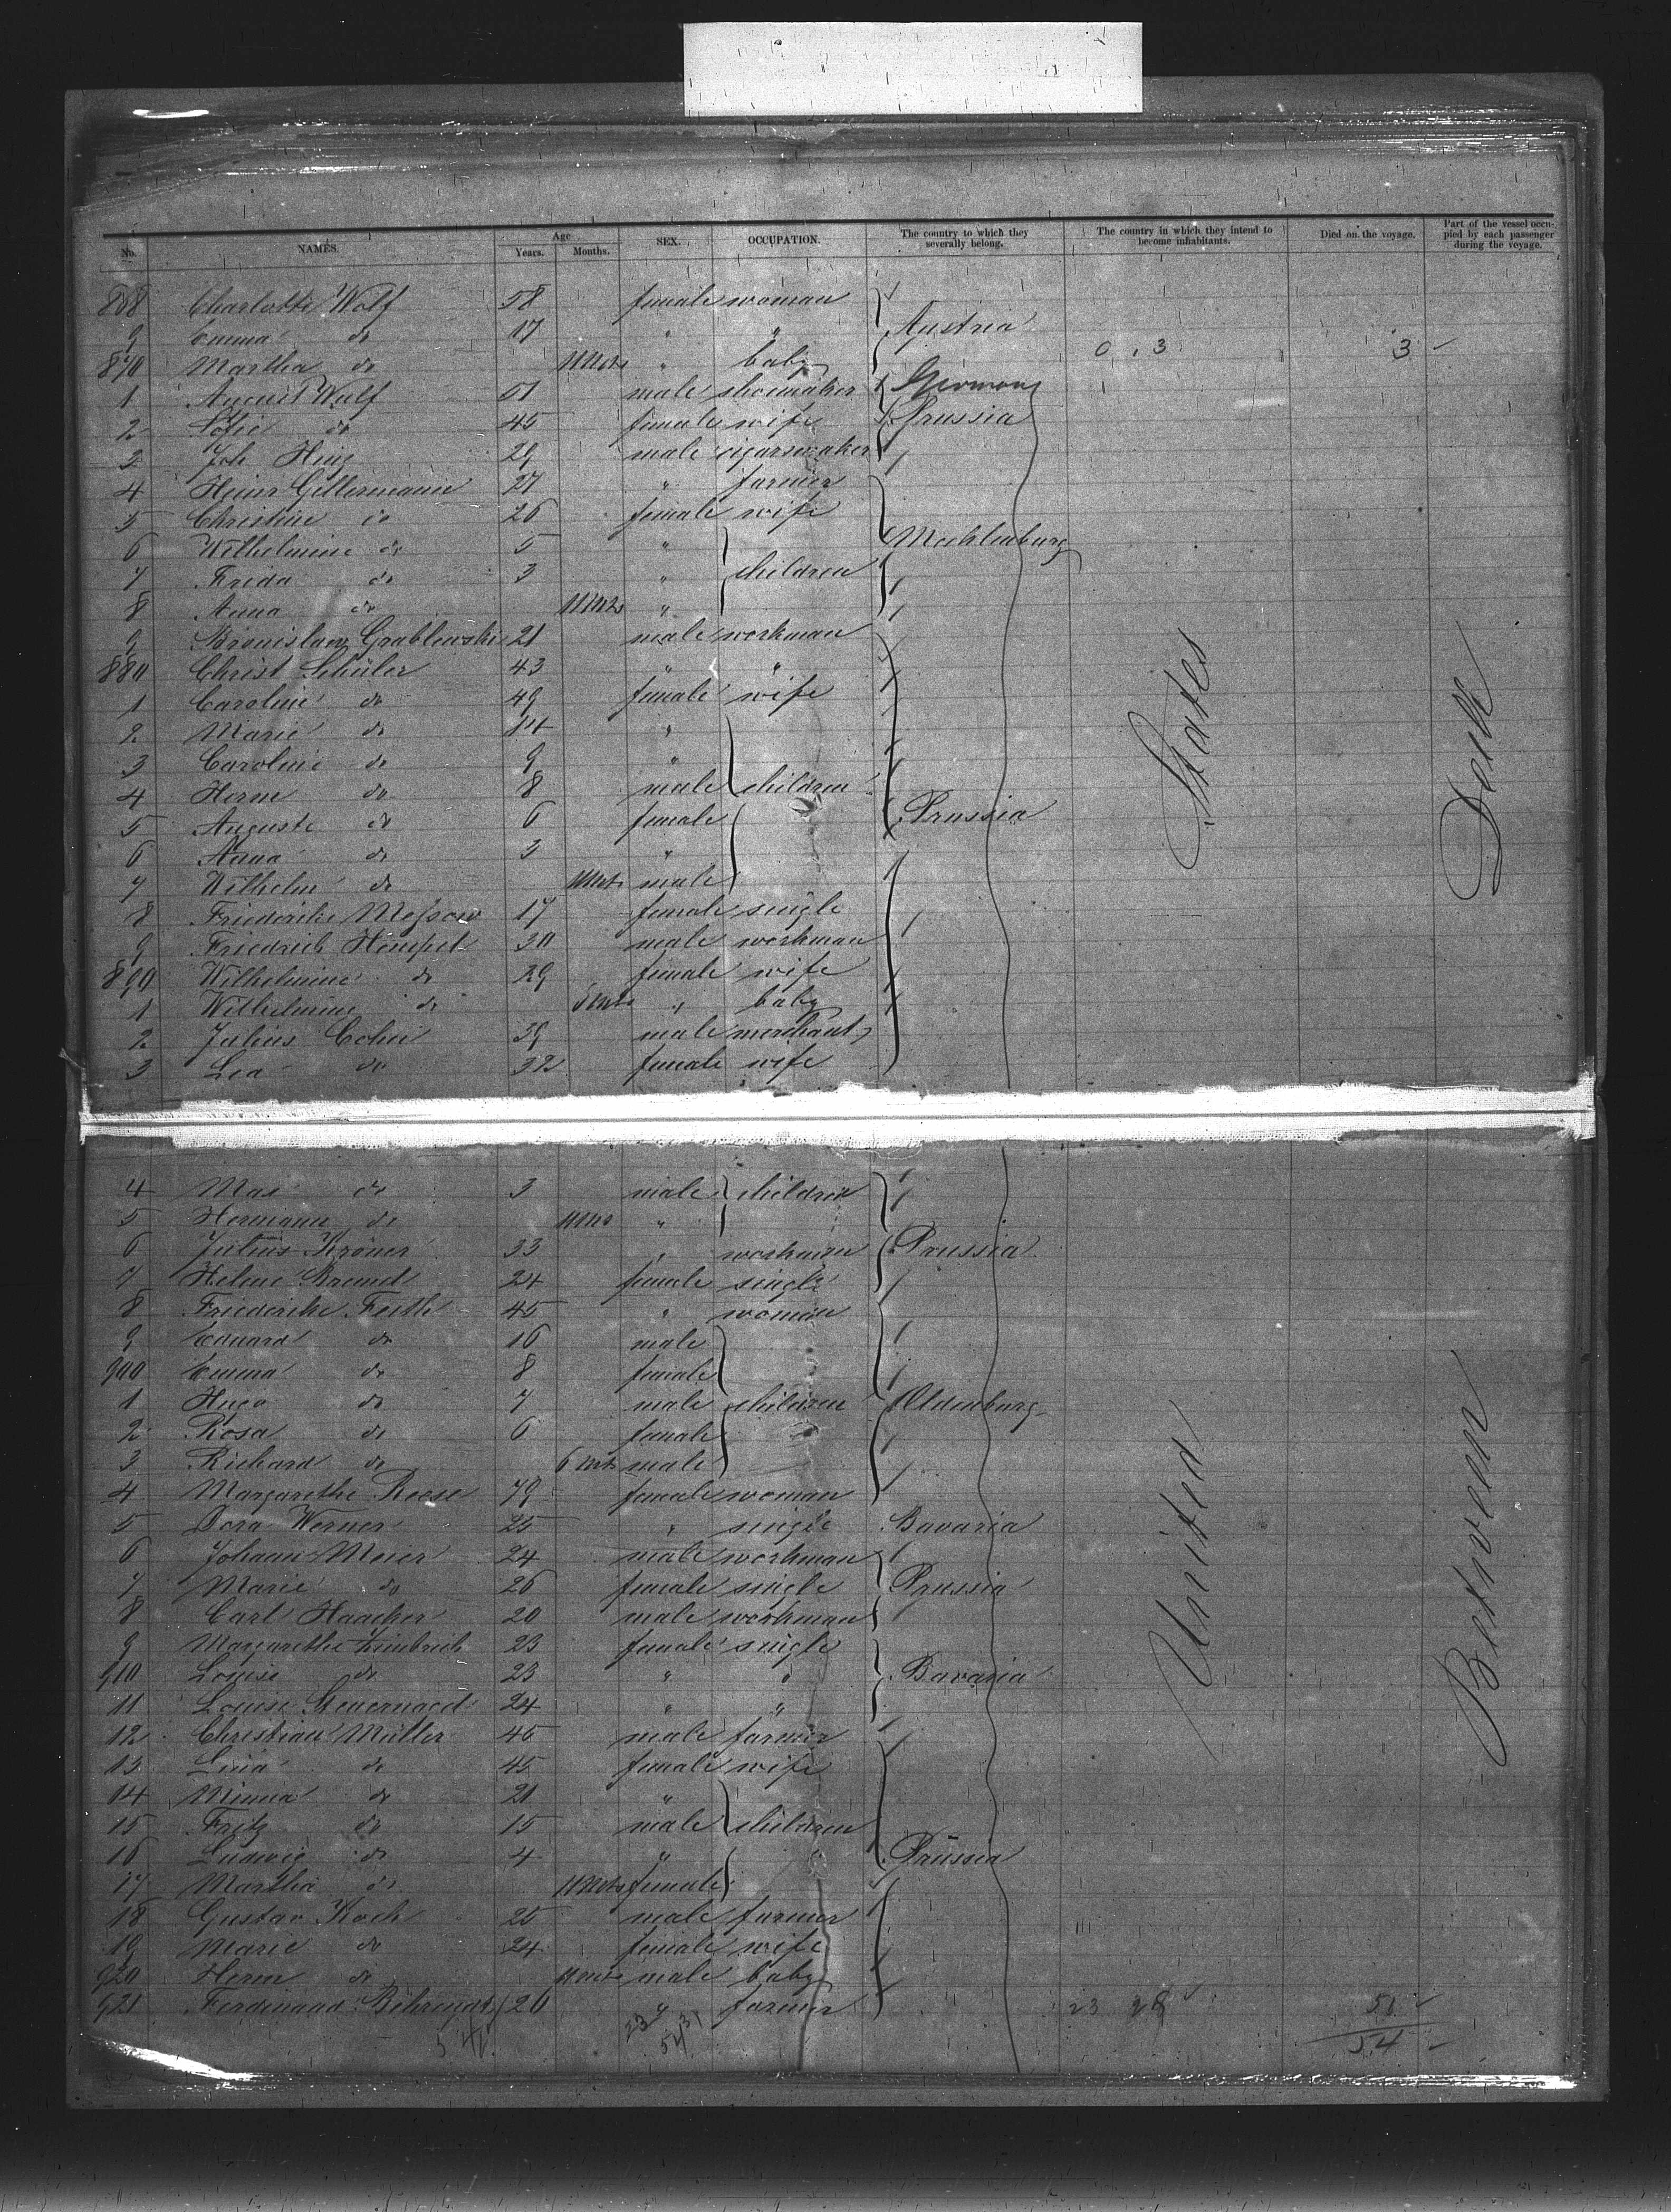 No. NAMES. Age Years. Months. SEX. OCCUPATION. The country to which they severally belong. The country in which they intend to become inhabitants. Died on the voyage. Part of the vessel occupied by each passenger during the voyage.
868 Charlotte Wolf 58 female woman
9 Emma do 17 " " Austria
870 Martha do 11 Mts " baby 0 , 3 3 -
1 August Wulf 51 male shoemaker Germany
2 Sofie do 45 female wife Prussia
3 Joh Hinz 29 male cigarsmaker
4 Heinr Gellermann 27 " farmer
5 Christine do 26 female wife
6 Wilhelmine do 5 " Mecklenburg
7 Frida do 3 " children
8 Anna do 11 Mts "
9 Bronislaw Grablewski 21 male workman
880 Christ Schüler 43 " "
1 Caroline do 49 female wife
2 Marie do 14 "
3 Caroline do 9 "
4 Herm do 8 male children
5 Auguste do 6 female Prussia
6 Anna do 3 "
7 Wilhelm do 11 Mts male
8 Friederike Messow 17 female single
9 Friedrich Hempel 30 male workman
890 Wilhelmine do 29 female wife
1 Wilhelmine do Mts " baby
2 Julius Cohn 39 male merchant
3 Lea do 32 female wife
States
Deck
4 Max do 3 male children
5 Hermann do 11 Mts "
6 Julius Kröner 33 " workman Prussia
7 Helene Brand 24 female single
8 Friederike Feith 45 " woman
9 Eduard do 16 male
900 Emma do 8 female
1 Hugo do 7 male children Oldenburg
2 Rosa do 6 female
3 Richard do 6 Mts male
4 Margarethe Reese 79 female woman
5 Dora Werner 25 " single Bavaria
6 Johann Meier 24 male workman
7 Marie do 26 female single Prussia
8 Carl Haacker 20 male workman
9 Margarethe 23 female single
910 Louise do 23 " " Bavaria
11 Louise 24 " "
12 Christian Müller 45 male farmer
13 Lina do 45 female wife
14 Minna do 21 "
15 Fritz do 15 male children
16 Ludwig do 4 " Prussia
17 Martha do 11 Mts female
18 Gustav Koch 25 male farmer
19 Marie do 24 female wife
920 Herm do 11 Mts male baby
921 Ferdinand 26 " farmer 23 28 51
23 31 54 54
United
Between